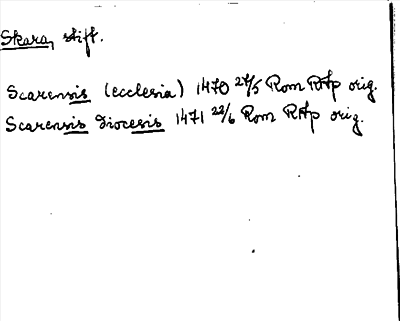 Skara, stift.
Scarensis (ecclesia) 1470 24/5 Rom RAp orig.
Scarensis diocesis 1471 22/6 Rom RAp orig.